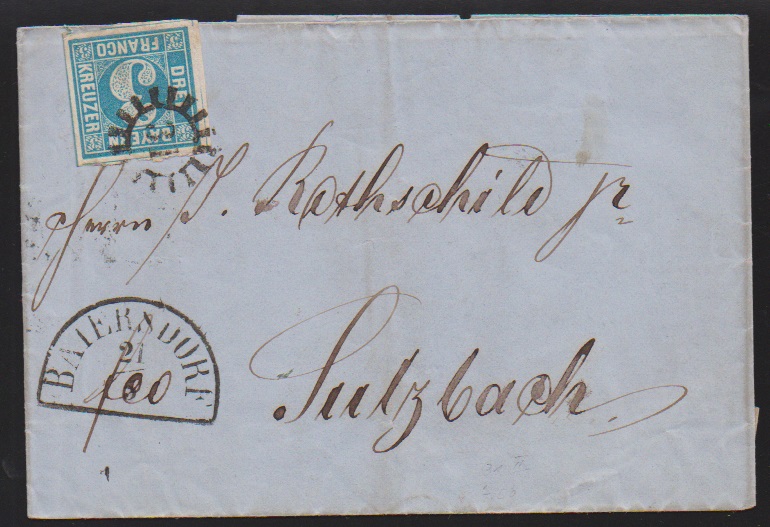 FRANCO
DREI
KREUZER
BAYERN
Herrn J. Rothschild jr
BAIERSDORF
21
fco
Sulzbach.